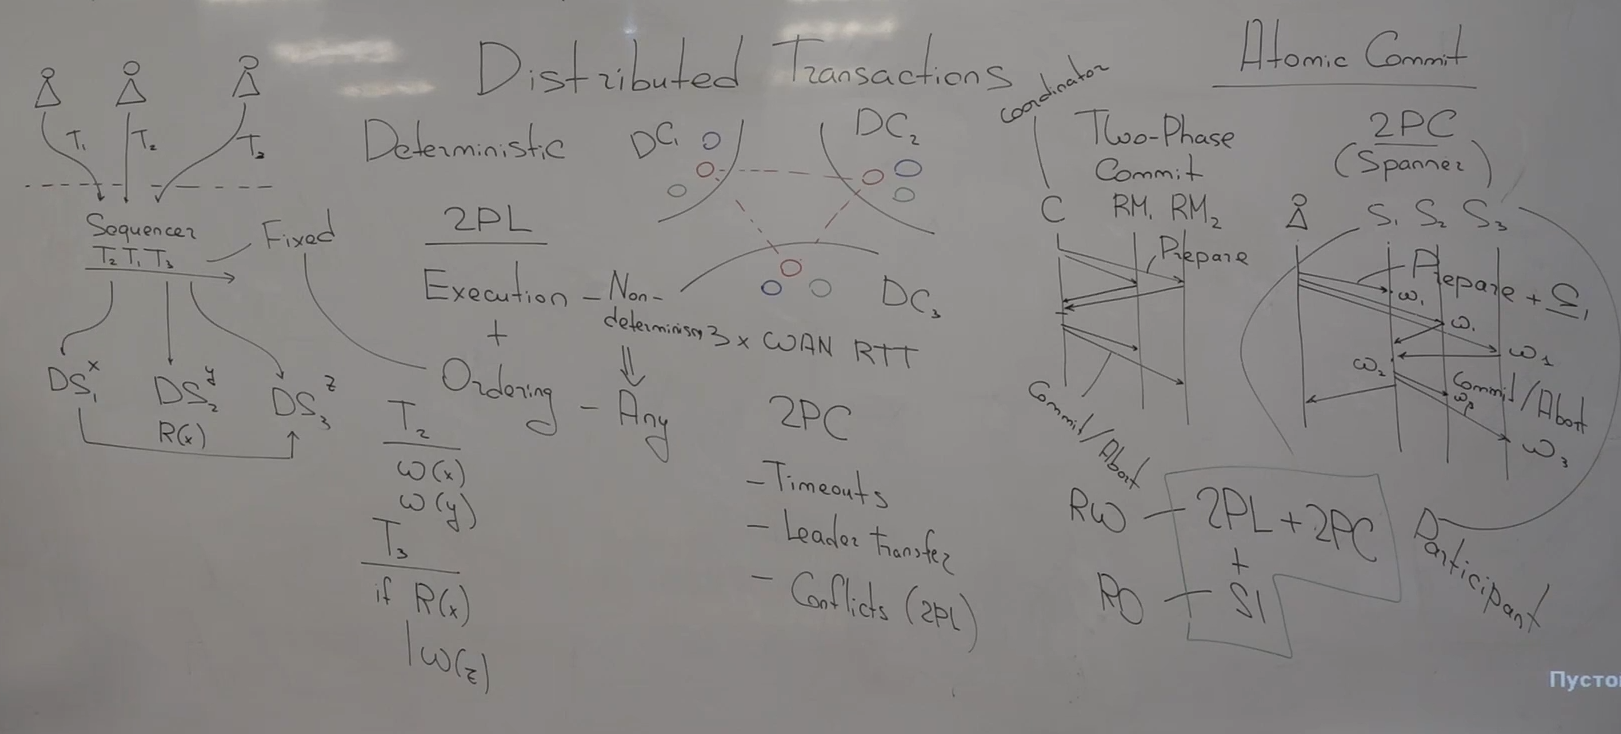 Distributed Transactions
Atomic Commit
T₁ T₂ T₃
Sequencer
T₂ T₁ T₃
Fixed
DS₁ˣ DS₂ʸ DS₃ᶻ
R(x)
Deterministic
2PL
Execution - Non-determinism
+
Ordering - Any
T₂
ω(x)
ω(y)
T₃
if R(x)
ω(z)
DC₁
DC₂
DC₃
3 x WAN RTT
2PC
- Timeouts
- Leader transfer
- Conflicts (2PL)
Coordinator
Two-Phase
Commit
C RM₁ RM₂
Prepare
Commit/Abort
2PC
(Spanner)
S₁ S₂ S₃
Prepare + S₁
ω₁
ω₁
ω₁
ω₂
Commit/Abort
ω₃
RW - 2PL + 2PC
+
RO - SI
Participant
Пусто